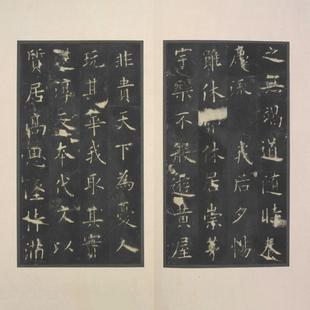 之無竭道隨時泰
慶流我后夕惕
雖休休居崇茅
宇樂不般遊黃屋
非貴天下為憂人
玩其華我取其實
還淳反本代文以
質居高思墜持滿